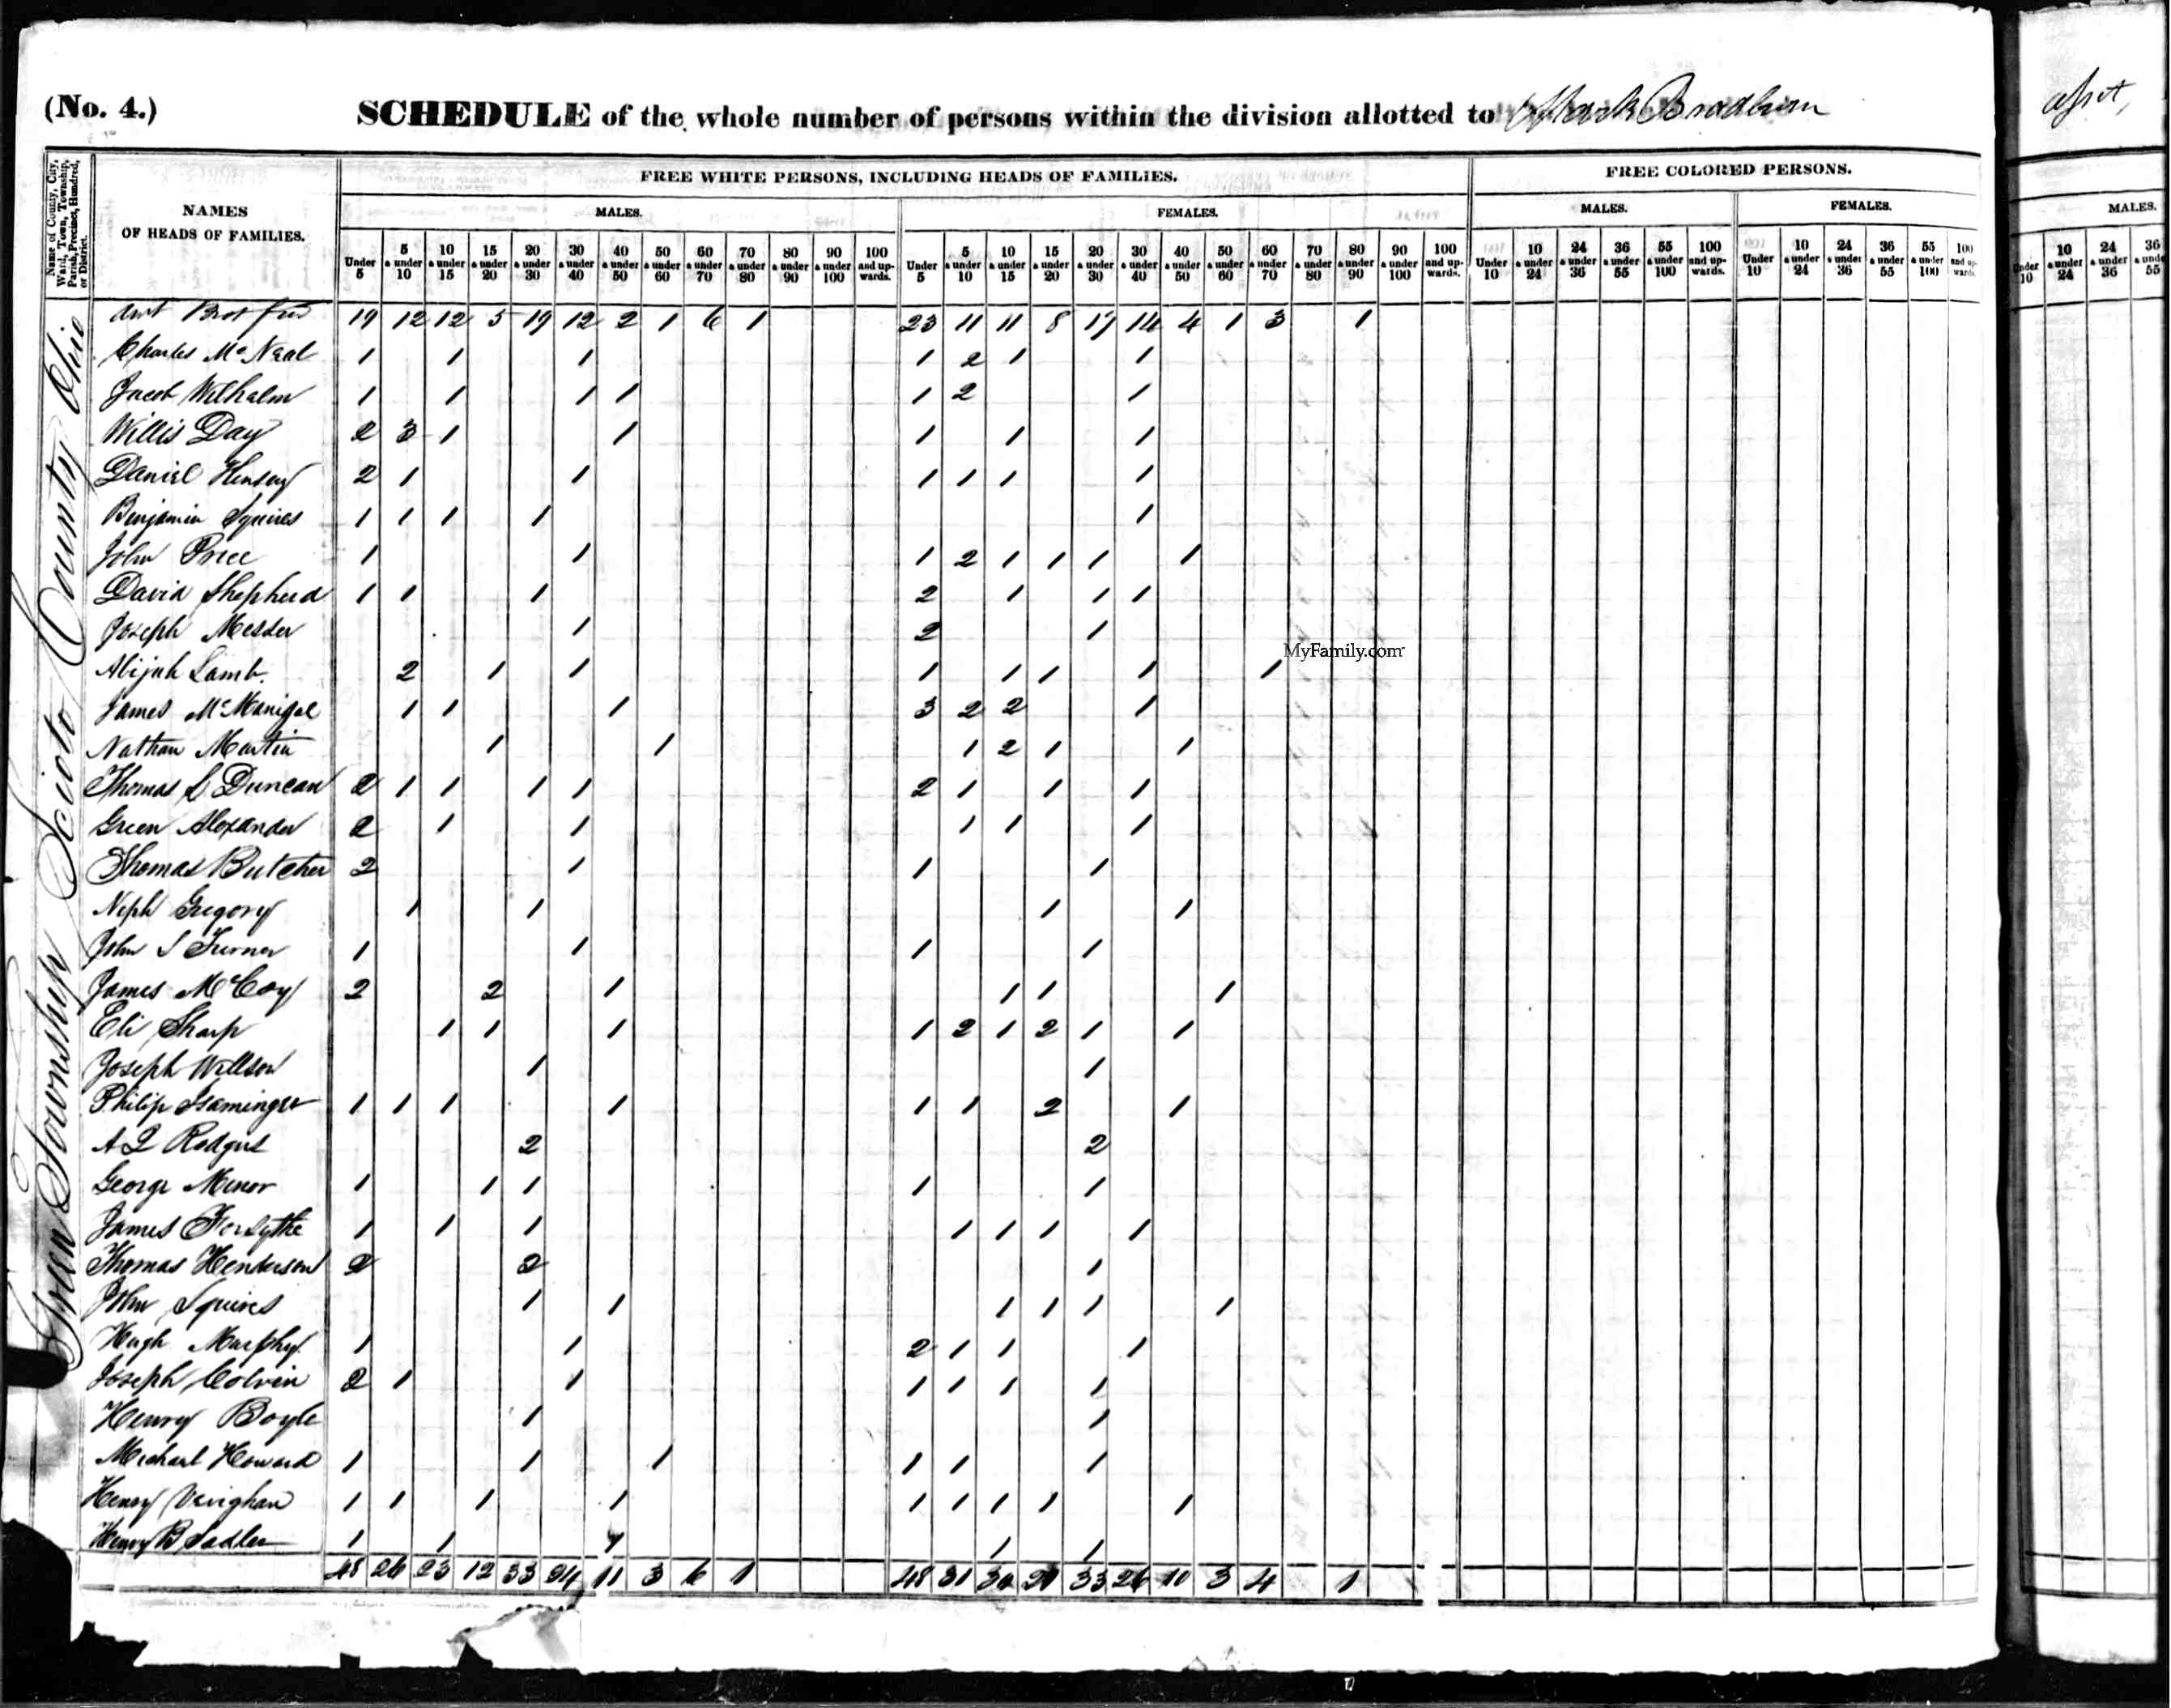 (No. 4.) SCHEDULE of the whole number of persons within the division allotted to Mark Bradburn
apst,
FREE WHITE PERSONS, INCLUDING HEADS OF FAMILIES. FREE COLORED PERSONS.
Name of County, City, Ward, Town, Township, Parish, Precinct, Hundred, or District.
NAMES OF HEADS OF FAMILIES.
MALES. FEMALES. MALES. FEMALES. MALES.
Under 5 5 & under 10 10 & under 15 15 & under 20 20 & under 30 30 & under 40 40 & under 50 50 & under 60 60 & under 70 70 & under 80 80 & under 90 90 & under 100 100 and upwards. Under 5 5 & under 10 10 & under 15 15 & under 20 20 & under 30 30 & under 40 40 & under 50 50 & under 60 60 & under 70 70 & under 80 80 & under 90 90 & under 100 100 and upwards. Under 10 10 & under 24 24 & under 36 36 & under 55 55 & under 100 100 and upwards. Under 10 10 & under 24 24 & under 36 36 & under 55 55 & under 100 100 and upwards. Under 10 10 & under 24 24 & under 36 36 & under 55
Green Township Scioto County Ohio
Amt Brot fwd 19 12 12 5 19 12 2 1 6 1 23 11 11 8 17 14 4 1 3 1
Charles McNeal 1 1 1 1 2 1 1
Jacob Wilhalm 1 1 1 1 1 2 1
Willis Day 2 3 1 1 1 1 1
Daniel Hensey 2 1 1 1 1 1 1
Benjamin Squires 1 1 1 1 1
John Price 1 1 1 2 1 1 1 1
David Shepherd 1 1 1 2 1 1 1
Joseph Messer 1 2 1
Abijah Lamb. 2 1 1 1 1 1 1 1
James McManigal 1 1 1 3 2 2 1
Nathan Martin 1 1 1 2 1 1
Thomas S Duncan 2 1 1 1 1 2 1 1 1
Green Alexander 2 1 1 1 1 1
Thomas Butcher 2 1 1 1
Neph Gregory 1 1 1 1
John S Turner 1 1 1 1
James McCoy 2 2 1 1 1 1
Eli Sharp 1 1 1 1 2 1 2 1 1
Joseph Willson 1 1
Philip Isaminger 1 1 1 1 1 1 2 1
A Q Rodgers 2 2
George Menor 1 1 1 1 1
James Forsythe 1 1 1 1 1 1 1
Thomas Henderson 2 2 1
John Squires 1 1 1 1 1 1
Hugh Murphy 1 1 2 1 1 1
Joseph Colvin 2 1 1 1 1 1 1
Henry Boyle 1 1
Michael Howard 1 1 1 1 1 1
Henry Vaughan 1 1 1 1 1 1 1 1 1
Henry B Sadler 1 1 1 1 1
48 26 23 12 33 24 11 3 6 1 48 31 30 21 33 26 10 3 4 1
MyFamily.com